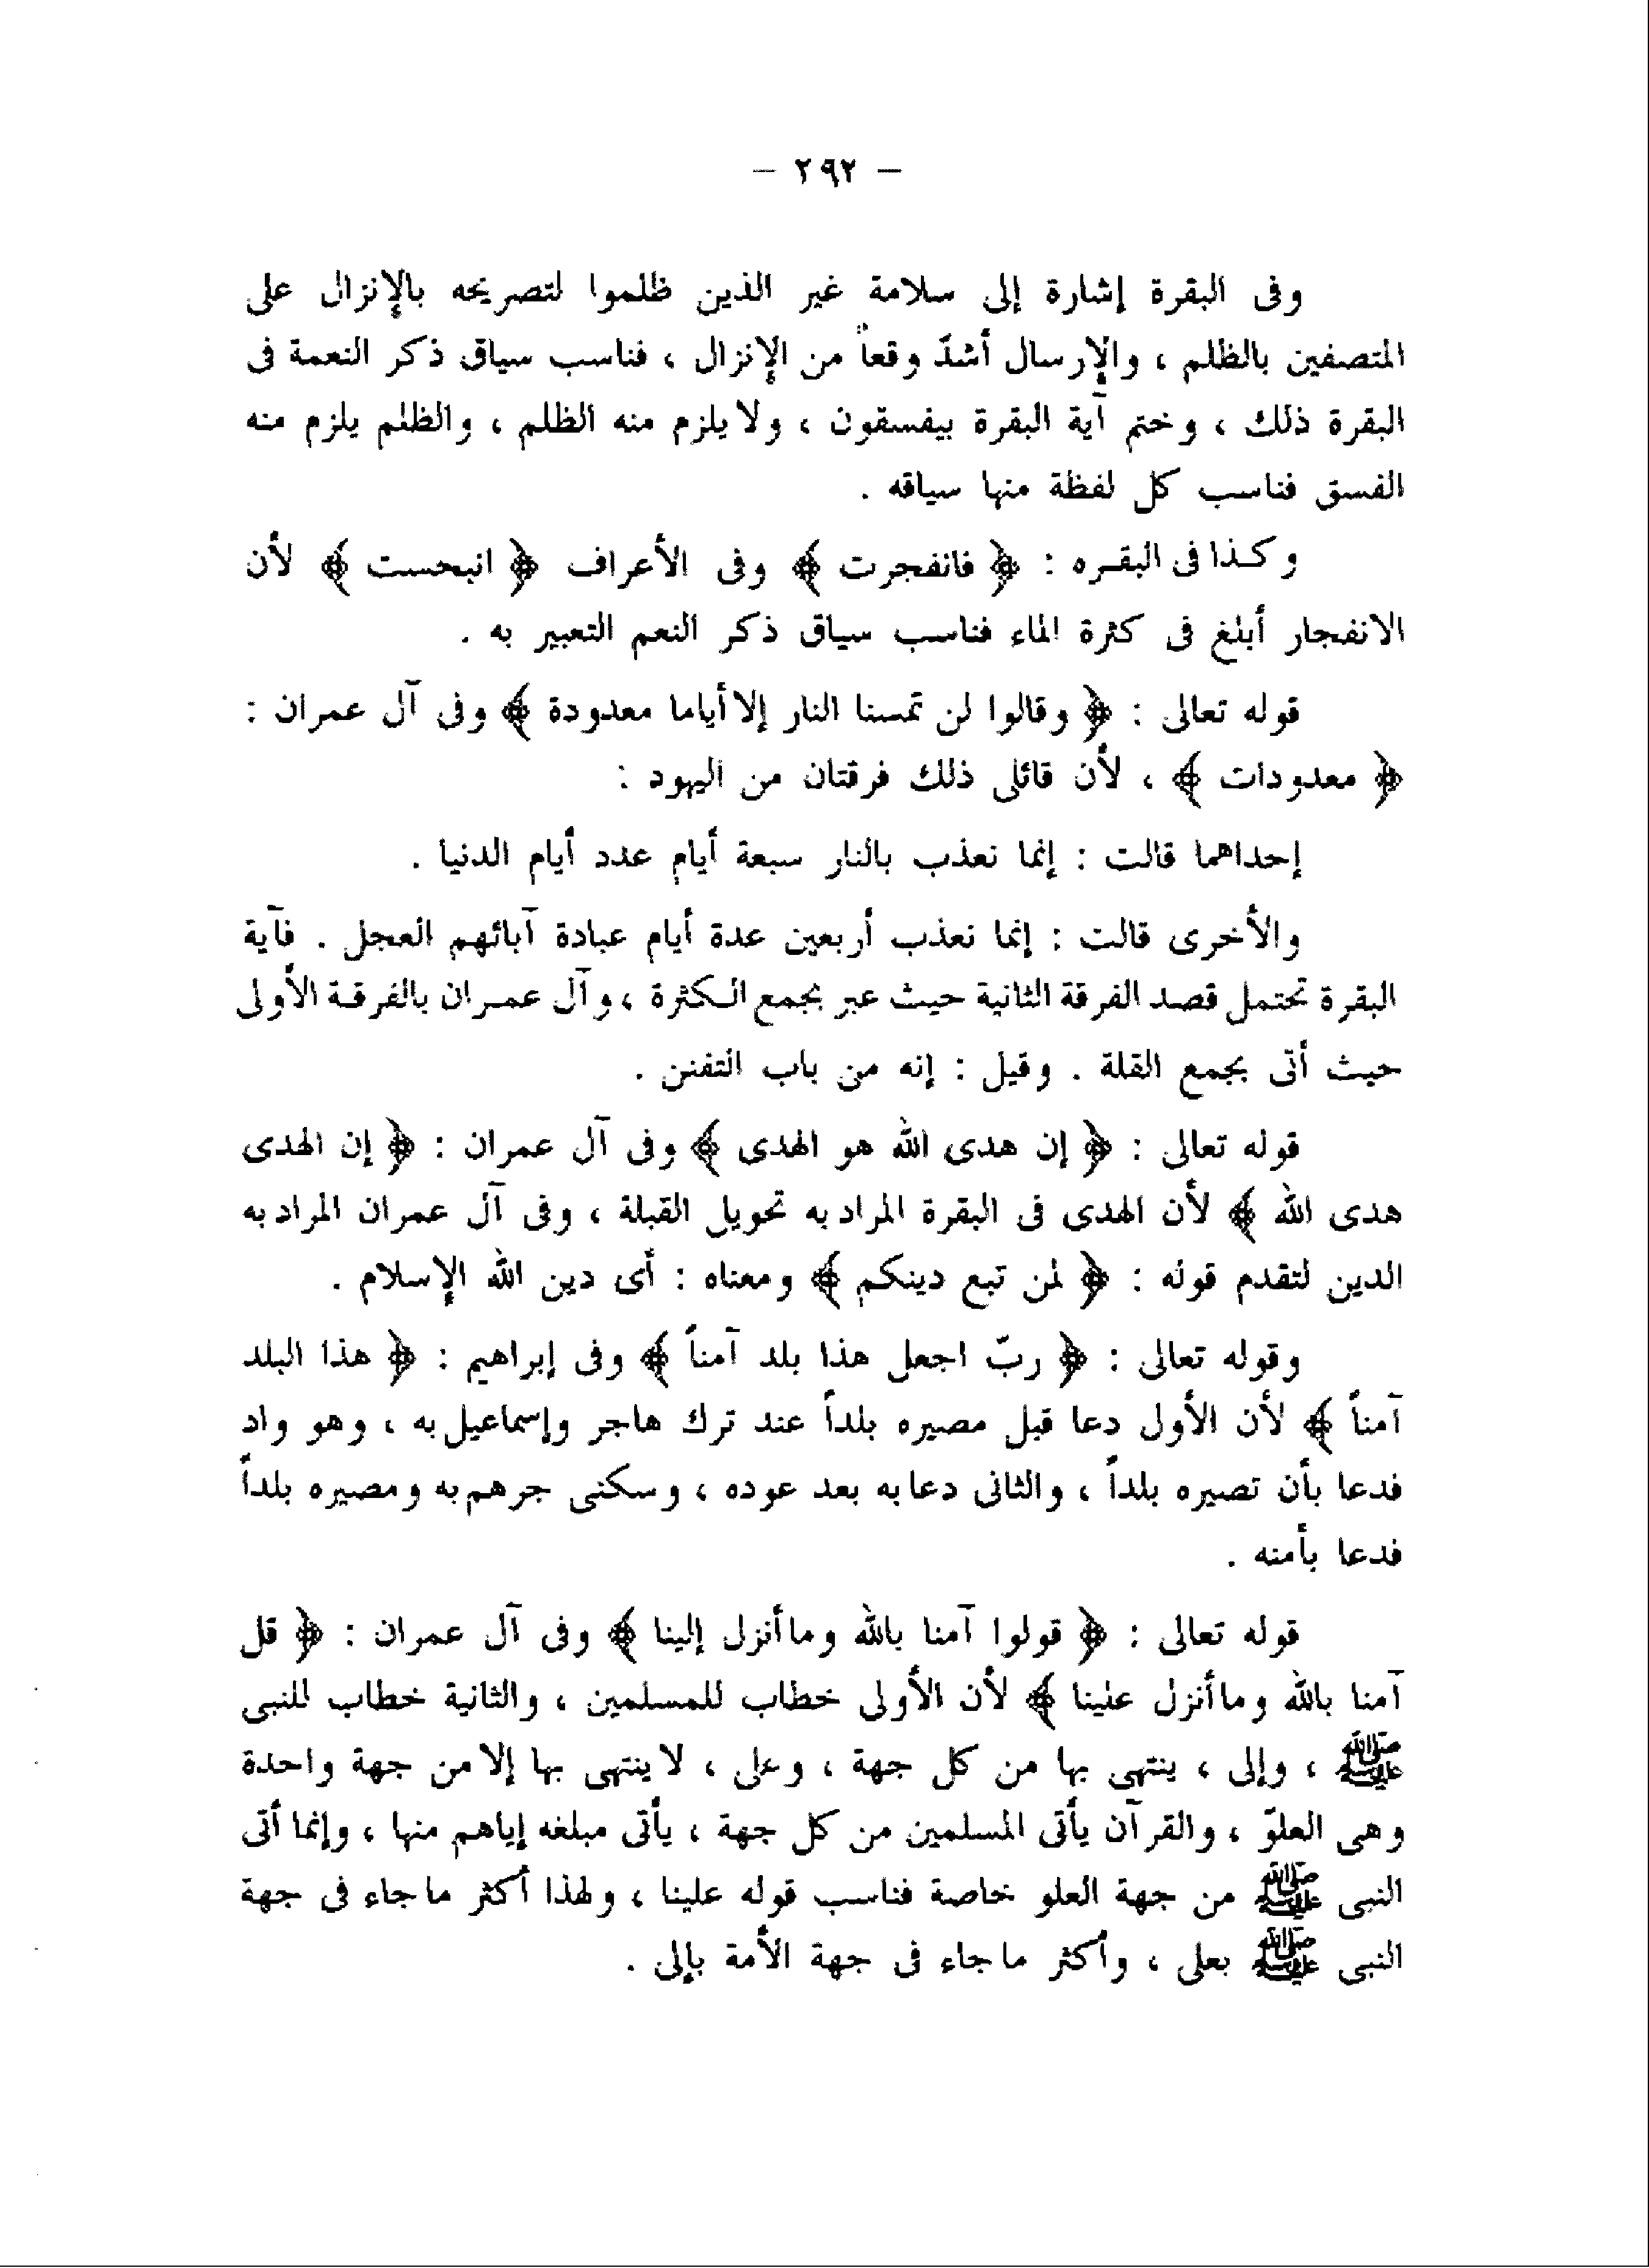 – ٢٩٢ –
وفى البقرة إشارة إلى سلامة غير الذين ظلموا لتصريحه بالإنزال على
المتصفين بالظلم ، والإرسال أشدّ وقعاً من الإنزال ، فناسب سياق ذكر النعمة فى
البقرة ذلك ، وختم آية البقرة بيفسقون ، ولا يلزم منه الظلم ، والظلم يلزم منه
الفسق فناسب كل لفظة منها سياقه .
وكذا فى البقره : ﴿ فانفجرت ﴾ وفى الأعراف ﴿ انبحست ﴾ لأن
الانفجار أبلغ فى كثرة الماء فناسب سياق ذكر النعم التعبير به .
قوله تعالى : ﴿ وقالوا لن تمسنا النار إلا أياما معدودة ﴾ وفى آل عمران :
﴿ معدودات ﴾ ، لأن قائلى ذلك فرقتان من اليهود :
إحداهما قالت : إنما نعذب بالنار سبعة أيام عدد أيام الدنيا .
والأخرى قالت : إنما نعذب أربعين عدة أيام عبادة آبائهم العجل . فآية
البقرة تحتمل قصد الفرقة الثانية حيث عبر بجمع الكثرة ، وآل عمران بالفرقة الأولى
حيث أتى بجمع القلة . وقيل : إنه من باب التفنن .
قوله تعالى : ﴿ إن هدى الله هو الهدى ﴾ وفى آل عمران : ﴿ إن الهدى
هدى الله ﴾ لأن الهدى فى البقرة المراد به تحويل القبلة ، وفى آل عمران المراد به
الدين لتقدم قوله : ﴿ لمن تبع دينكم ﴾ ومعناه : أى دين الله الإسلام .
وقوله تعالى : ﴿ ربّ اجعل هذا بلد آمناً ﴾ وفى إبراهيم : ﴿ هذا البلد
آمناً ﴾ لأن الأول دعا قبل مصيره بلداً عند ترك هاجر وإسماعيل به ، وهو واد
فدعا بأن تصيره بلداً ، والثانى دعا به بعد عوده ، وسكنى جرهم به ومصيره بلداً
فدعا بأمنه .
قوله تعالى : ﴿ قولوا آمنا بالله وما أنزل إلينا ﴾ وفى آل عمران : ﴿ قل
آمنا بالله وما أنزل علينا ﴾ لأن الأولى خطاب للمسلمين ، والثانية خطاب للنبى
ﷺ ، وإلى ، ينتهى بها من كل جهة ، وعلى ، لا ينتهى بها إلا من جهة واحدة
وهى العلوّ ، والقرآن يأتى المسلمين من كل جهة ، يأتى مبلغه إياهم منها ، وإنما أتى
النبى ﷺ من جهة العلو خاصة فناسب قوله علينا ، ولهذا أكثر ما جاء فى جهة
النبى ﷺ بعلى ، وأكثر ما جاء فى جهة الأمة بإلى .